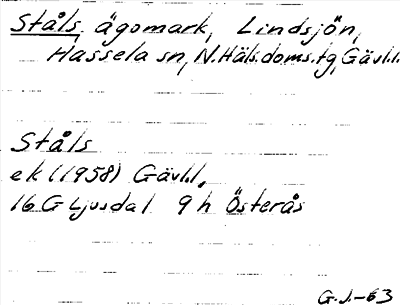 Ståls, ägomark, Lindsjön,
Hassela sn, N. Häls. doms. tg, Gävl.l.
Ståls
ek (1958) Gävl.l,
16 G Ljusdal 9 h Österås
G.J.-63